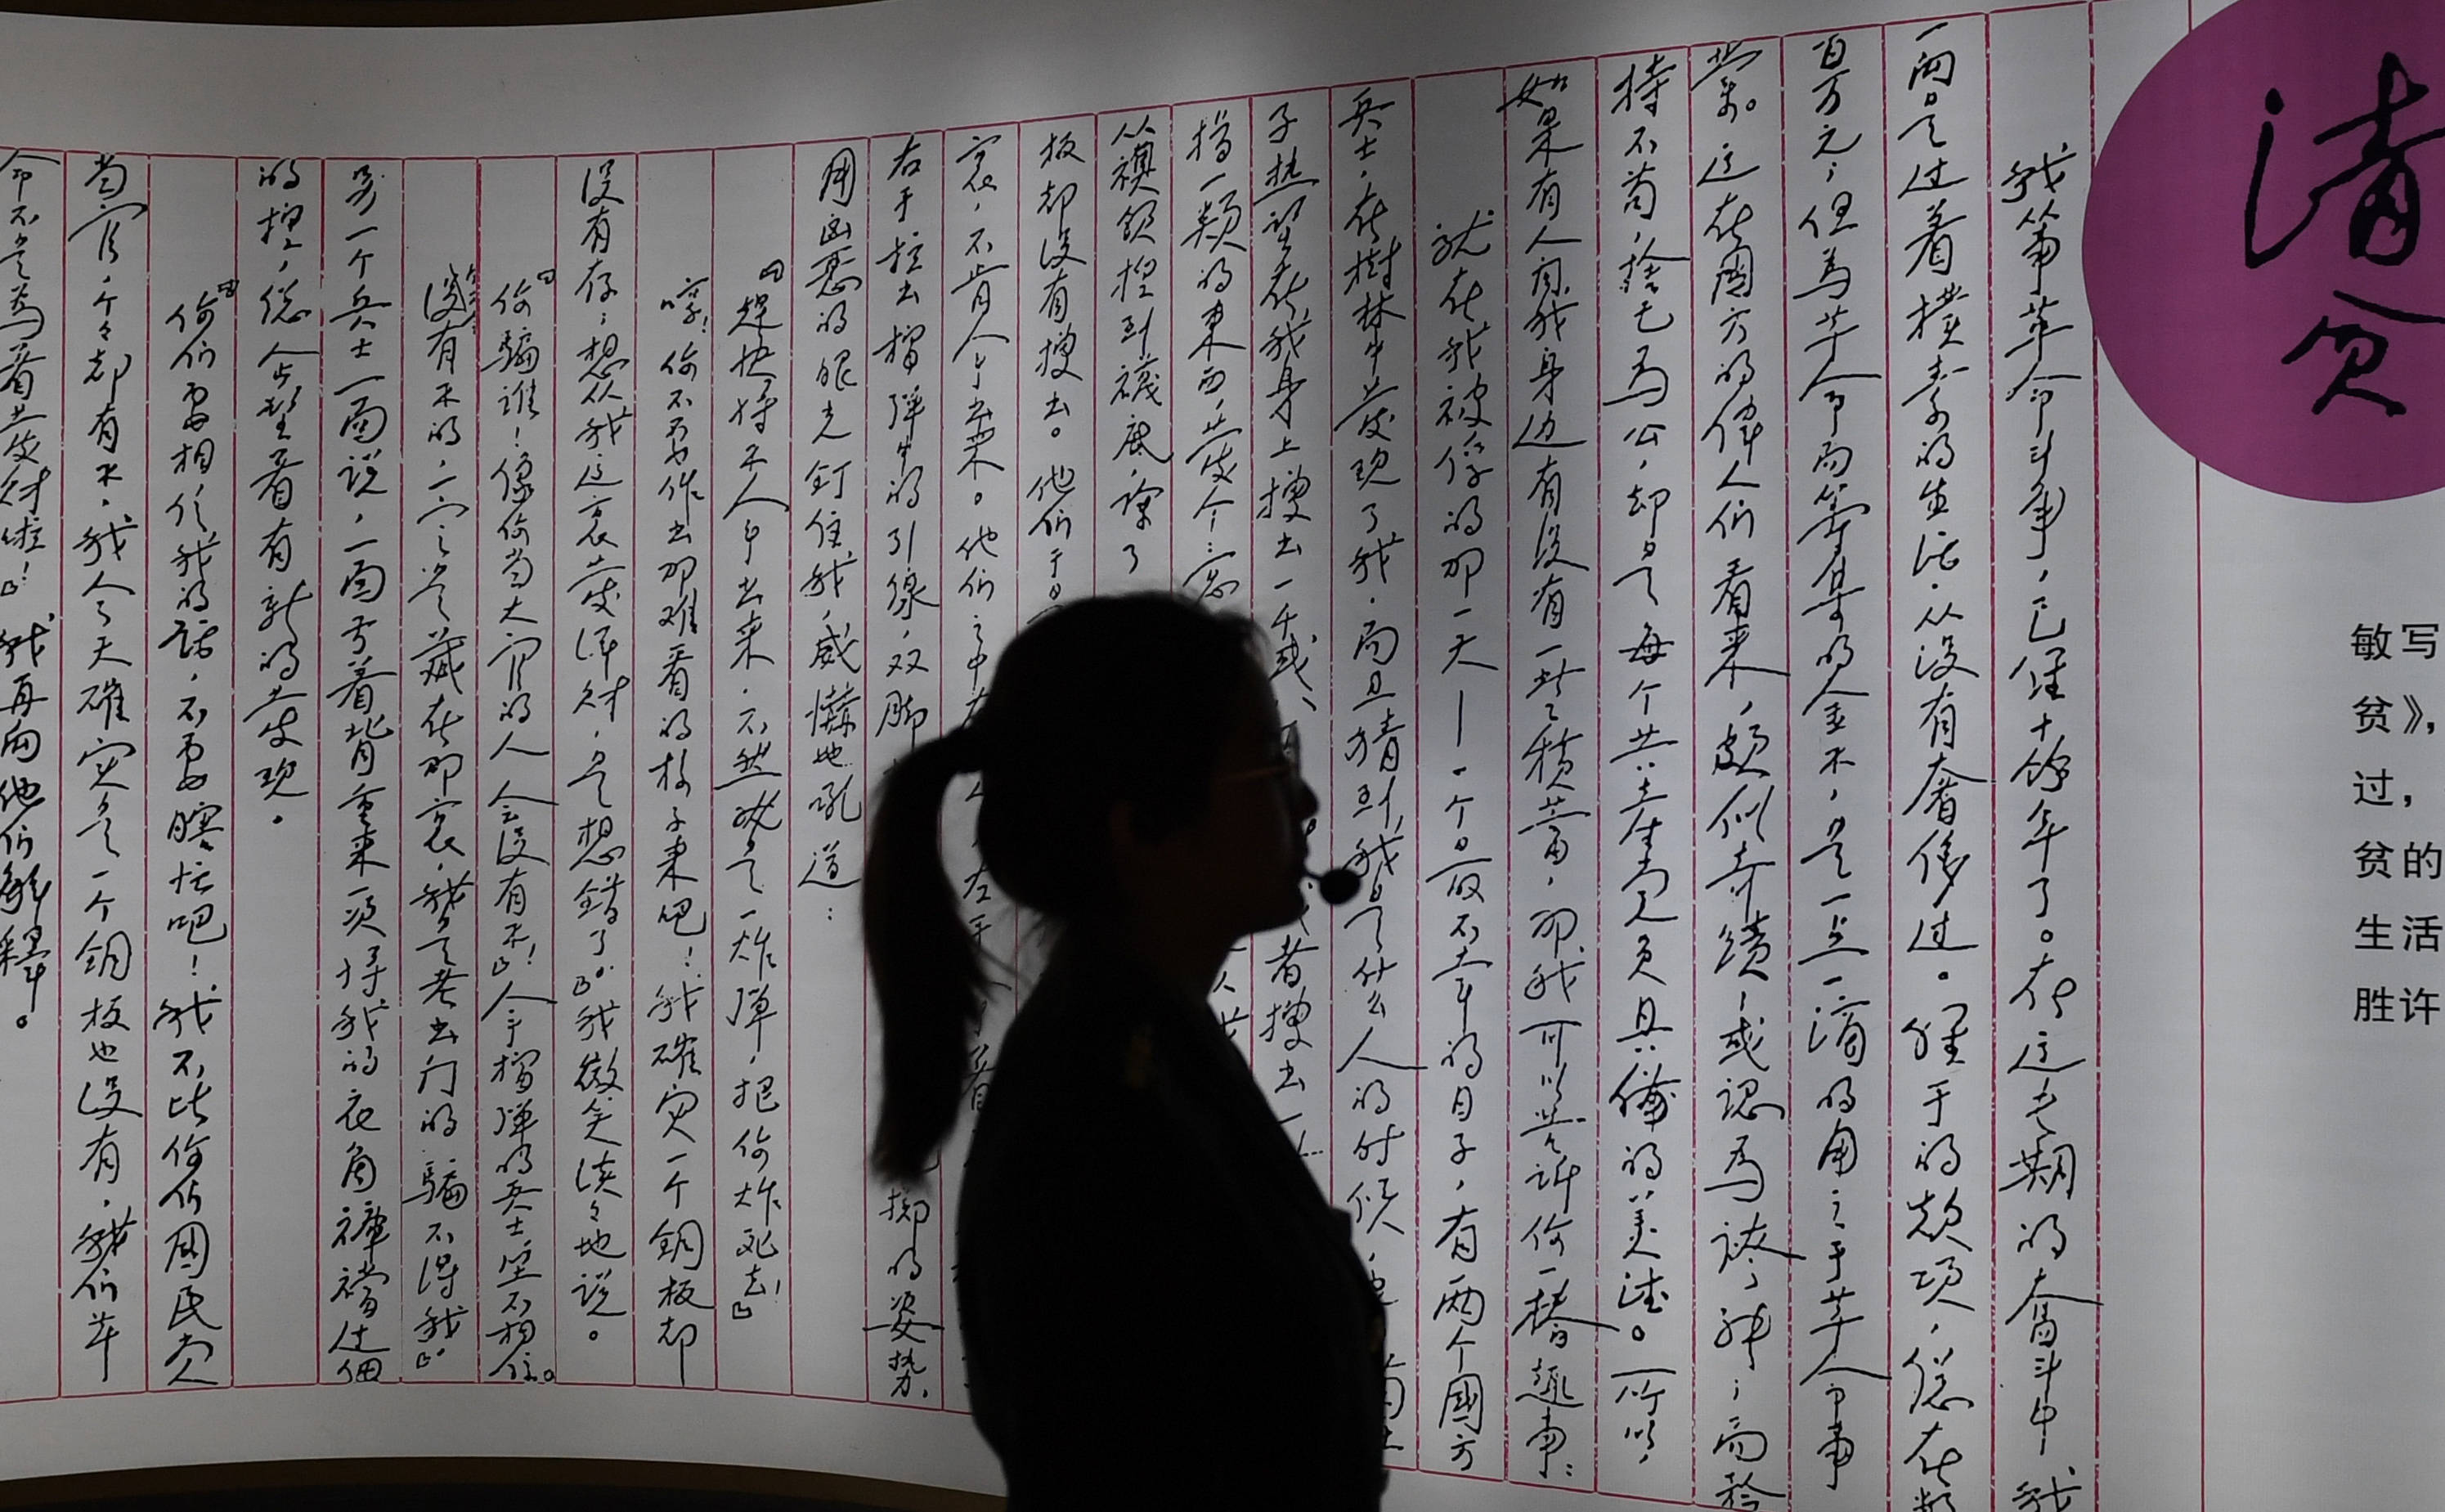 清贫
敏写
贫》，
过，
贫的
生活
胜许
我从事革命斗争，已经十余年了。在这长期的奋斗中，我
一向是过着朴素的生活，从没有奢侈过。经手的款项，总在数
百万元；但为革命而筹集的金钱，是一点一滴的用之于革命事
业。这在國方的偉人们看来，颇似奇蹟，或認为誇张；而矜
持不苟，捨己为公，却是每个共产党员具備的美德。所以，
如果有人问我身边有没有一些积蓄，那我可以告诉你一樁趣事：
就在我被俘的那一天——一个最不幸的日子，有两个國方
兵士，在樹林中发现了我，而且猜到我是什么人的时候，
子热望在我身上搜出一千或 或者搜出一
指一类的東西，发个
从襖领捏到襪底，除了
板都没有搜出。他们于是
衷，不肯拿出来。他们之中有 左手
右手拉出榴弹中的引線，双脚 掷的姿势，
用凶恶的眼光钉住我，威嚇地吼道：
「趕快将钱拿出来，不然就是一炸弹，把你炸死去！」
哼！你不要作出那难看的样子来吧！我確实一个铜板都
没有存；想从我这裏发洋财，是想錯了。」我微笑淡々地说。
「你骗谁！像你当大官的人会没有钱！」拿榴弹的兵士坚不相信。
没有钱的，一定是藏在那裏，我是老出门的，骗不得我。」
另一个兵士一面说，一面弓着背重来一次将我的衣角裤襠过细
的捏，总企望着有新的发现。
「你们要相信我的话，不要瞎忙吧！我不比你们國民党
当官，个々都有钱，我今天確实是一个铜板也没有，我们革
命不是为着发财啦！」我再向他们解釋。